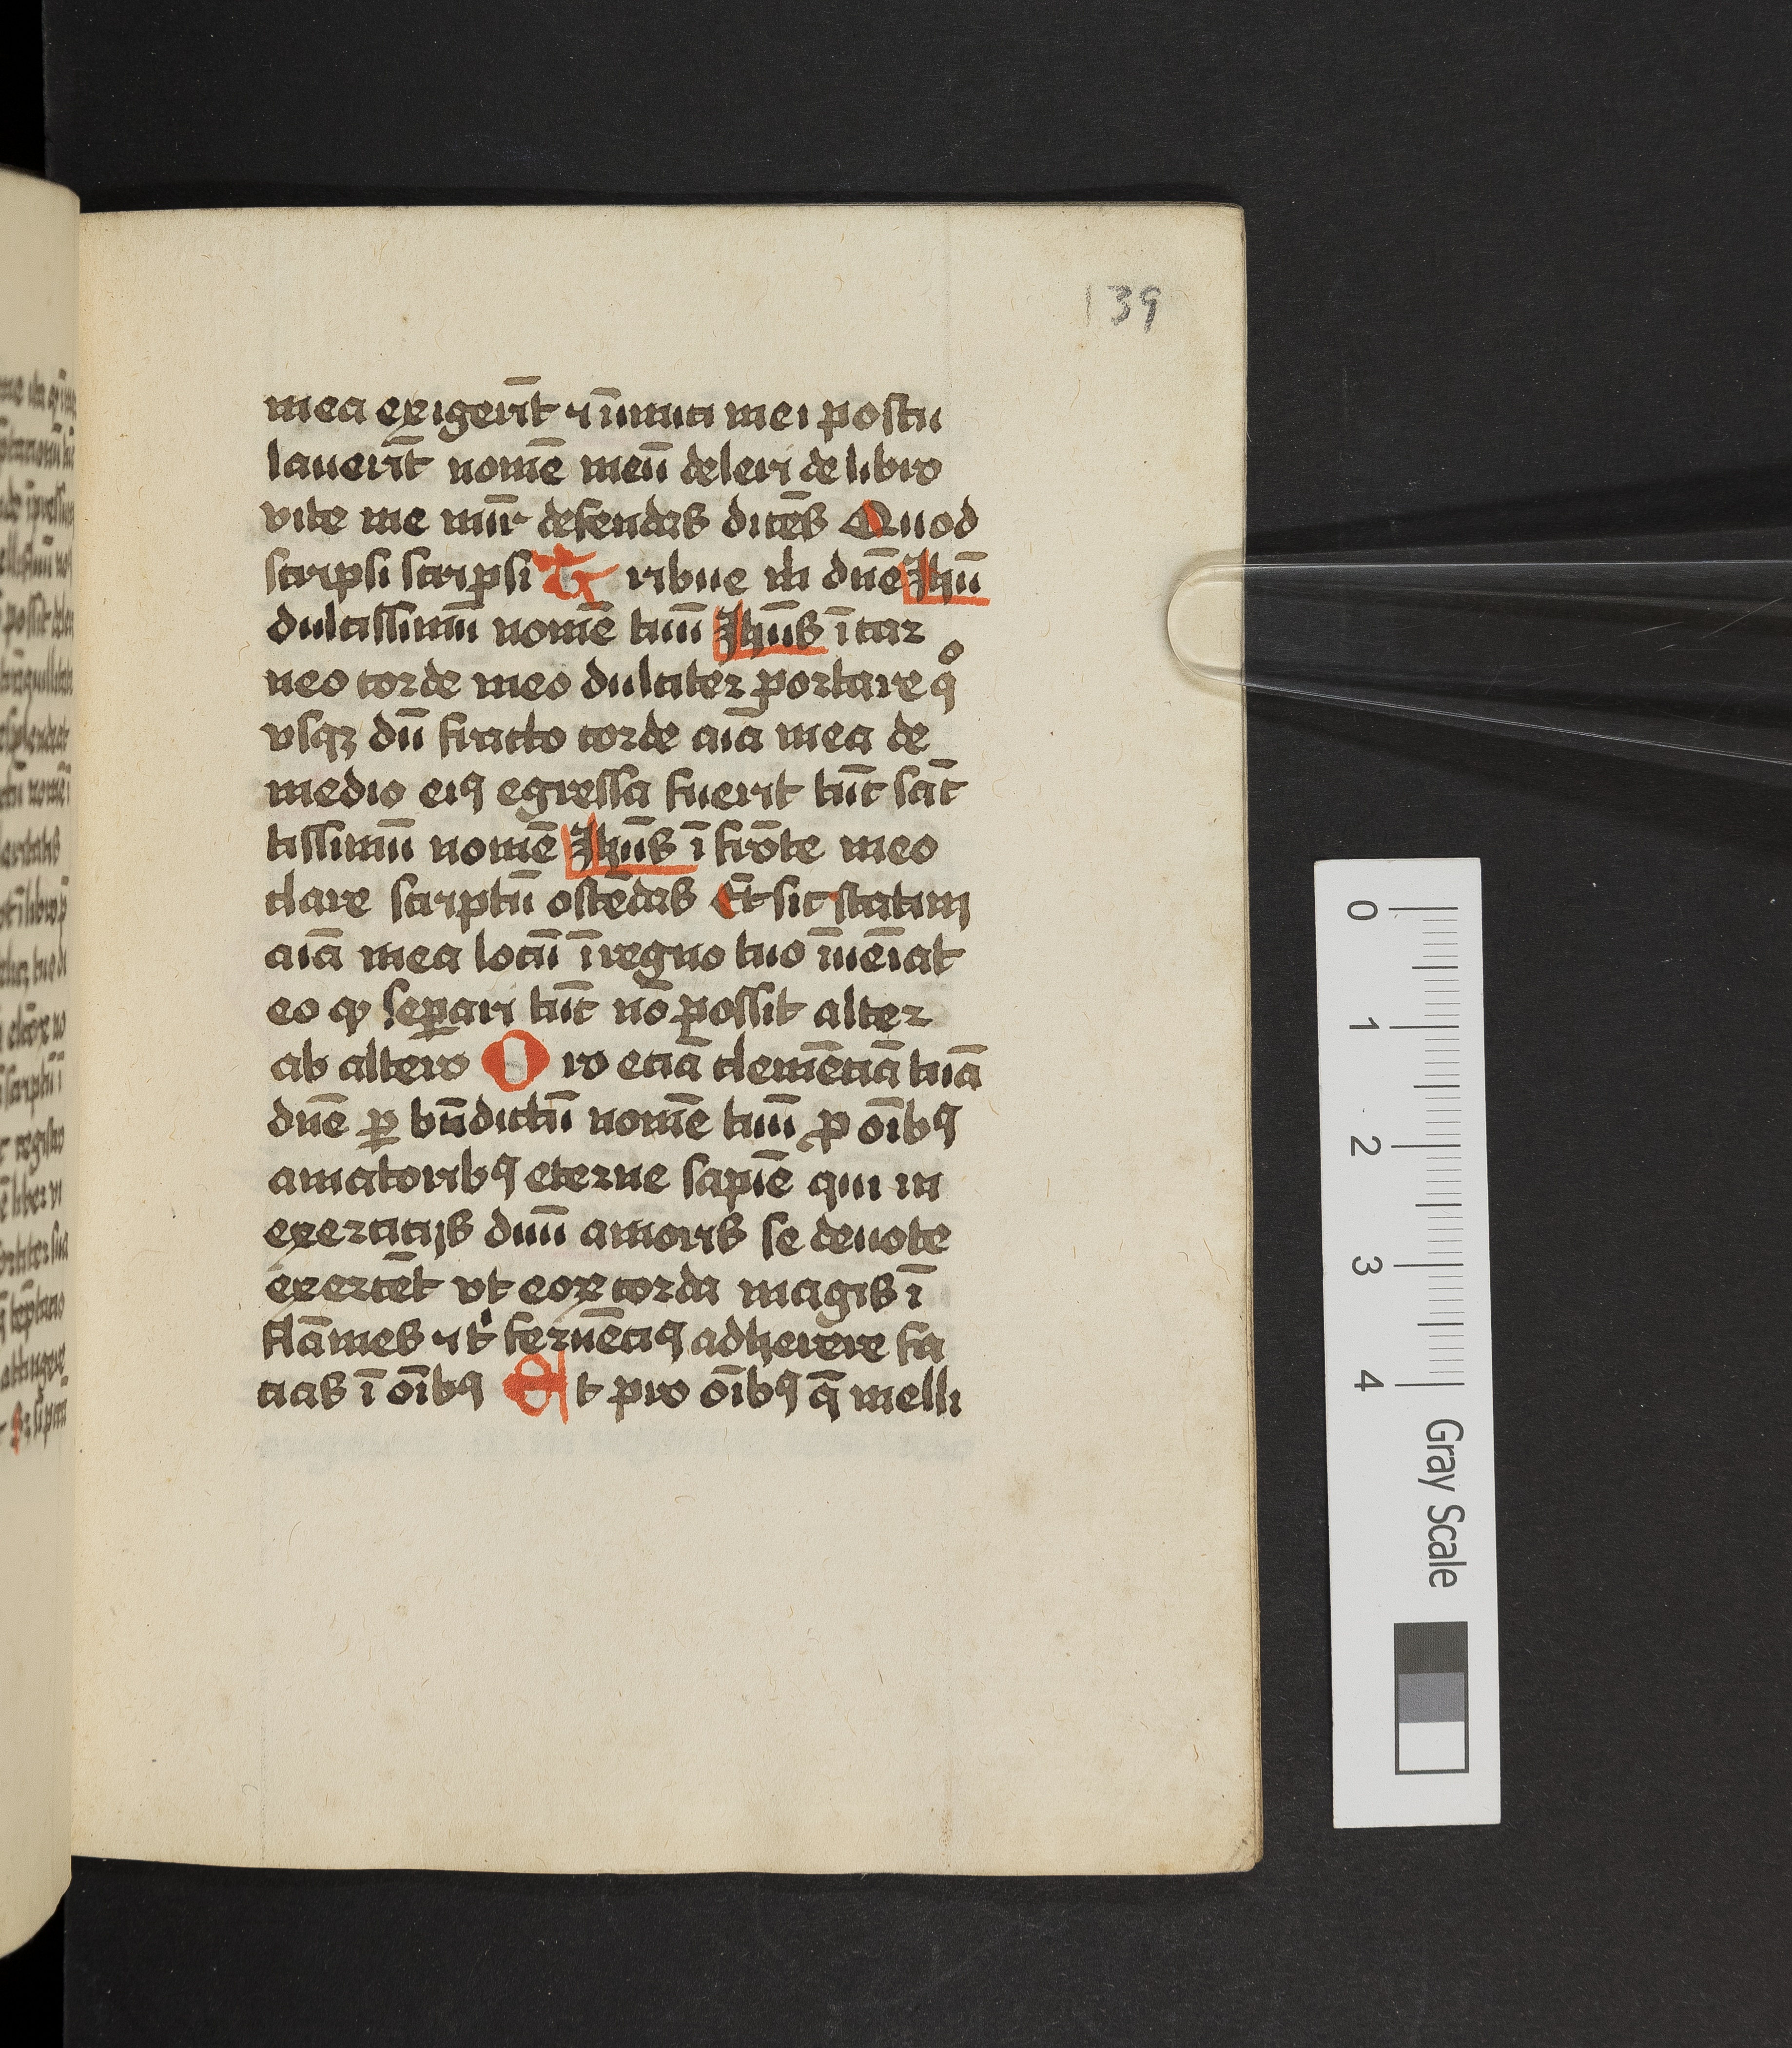 139
mea exigerīt ⁊ īimici mei postu
lauerīt nomē meū deleri de libro
vite me mīr defendas dicēs Quod
scripsi scripsi Tribue m̄i dn̄e Ihū
dulcissimū nomē tuū Ihūs ī car
neo corde meo dulciter portare qͦ
vsqꝫ dū fracto corde aīa mea de
medio eiꝰ egressa fuerit tūc sāc
tissimū nomē Ihūs ī frōte meo
clare scriptū ostēdas Et sic statim
aīa mea locū ī regno tuo īueīat
eo ꝙ seꝑari tūc nō possit alter
ab altero Oro eciā clemēciā tuā
dn̄e ꝑ bn̄dictū nomē tuū ꝓ oībꝰ
amatoribꝰ eterne sapiē qui in
exercicijs diuī amoris se deuote
exercēt vt eoꝝ corda magis ī
flāmes ⁊ tͥ feruēciꝰ adherere fa
cias ī oībꝰ Et pro oībꝰ q̄ melli
0
1
2
3
4
Gray Scale